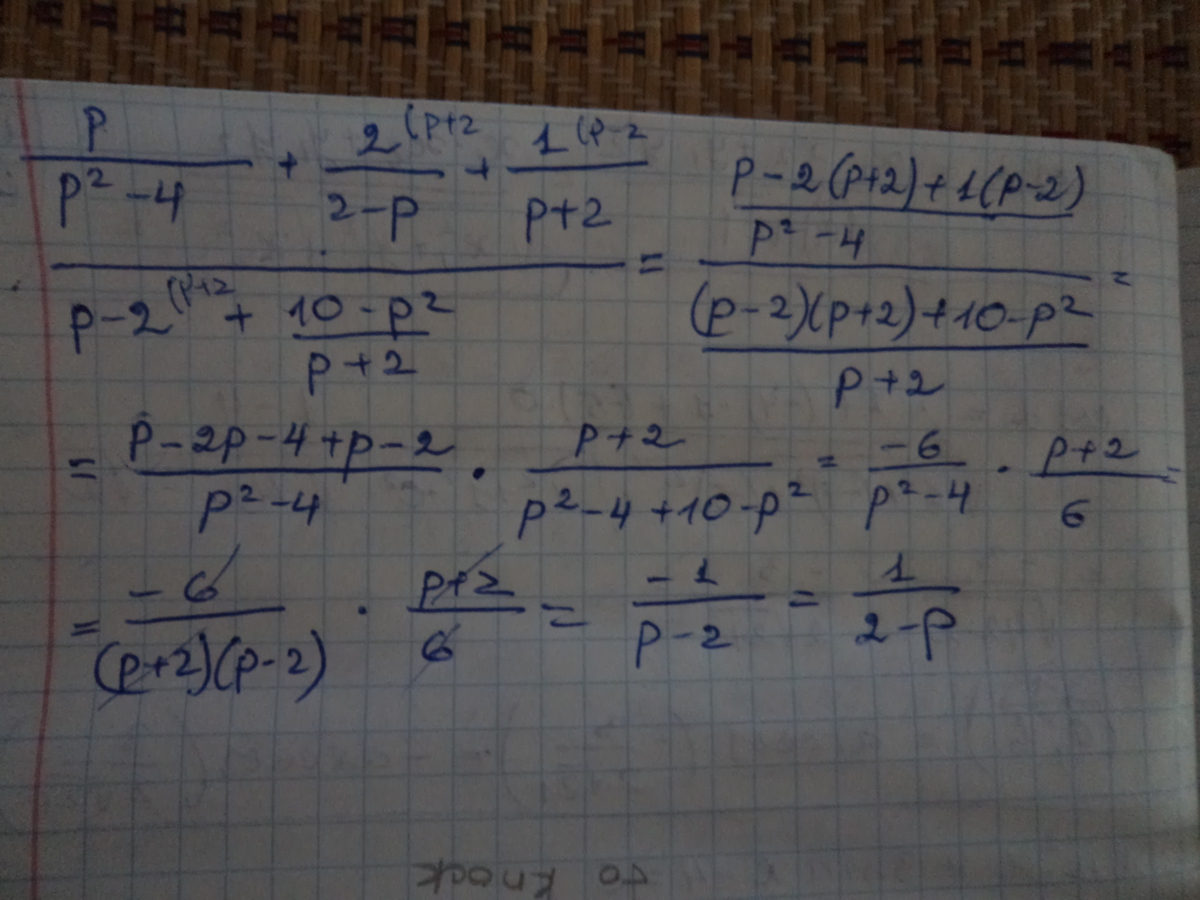 p/(p² - 4) + 2^(p+2/(2-p) + 1^(p-2/(p+2)
p-2^(p+2 + (10-p²)/(p+2)
= (p-2(p+2)+1(p-2))/(p²-4)
((p-2)(p+2)+10-p²)/(p+2) =
= (p-2p-4+p-2)/(p²-4) · (p+2)/(p²-4+10-p²) = -6/(p²-4) · (p+2)/6 =
= -6/((p+2)(p-2)) · (p+2)/6 = -1/(p-2) = 1/(2-p)
10 класс